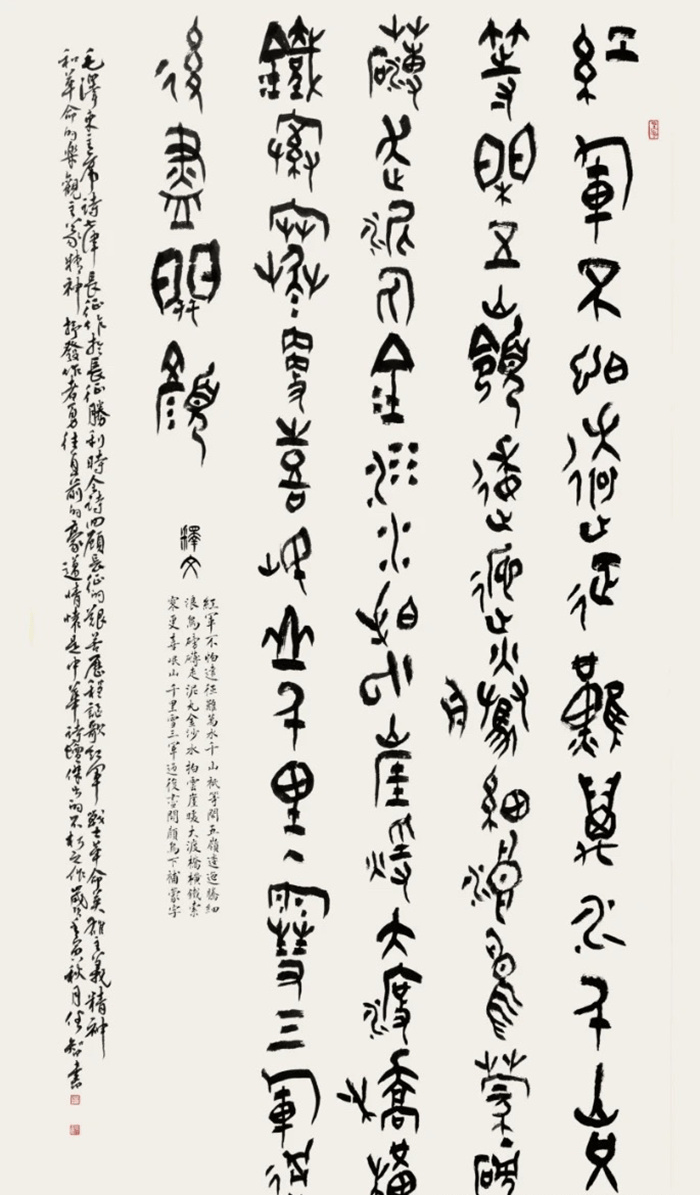 紅軍不怕遠征難萬水千山只
等閒五嶺逶迤騰細浪烏蒙磅
礴走泥丸金沙水拍雲崖暖大渡橋橫
鐵索寒更喜岷山千里雪三軍過
後盡開顏
釋文
紅軍不怕遠征難萬水千山祇等閒五嶺逶迤騰細
浪烏磅礴走泥丸金沙水拍雲崖暖大渡橋橫鐵索
寒更喜岷山千里雪三軍過後盡開顏烏下補蒙字
毛澤東主席詩七律長征作於長征勝利時全詩回顧長征的艱苦歷程謳歌紅軍戰士革命英雄主義精神
和革命的樂觀主義精神抒發作者勇往直前的豪邁情懷是中華詩壇傑出的不朽之作歲壬寅秋月任智書